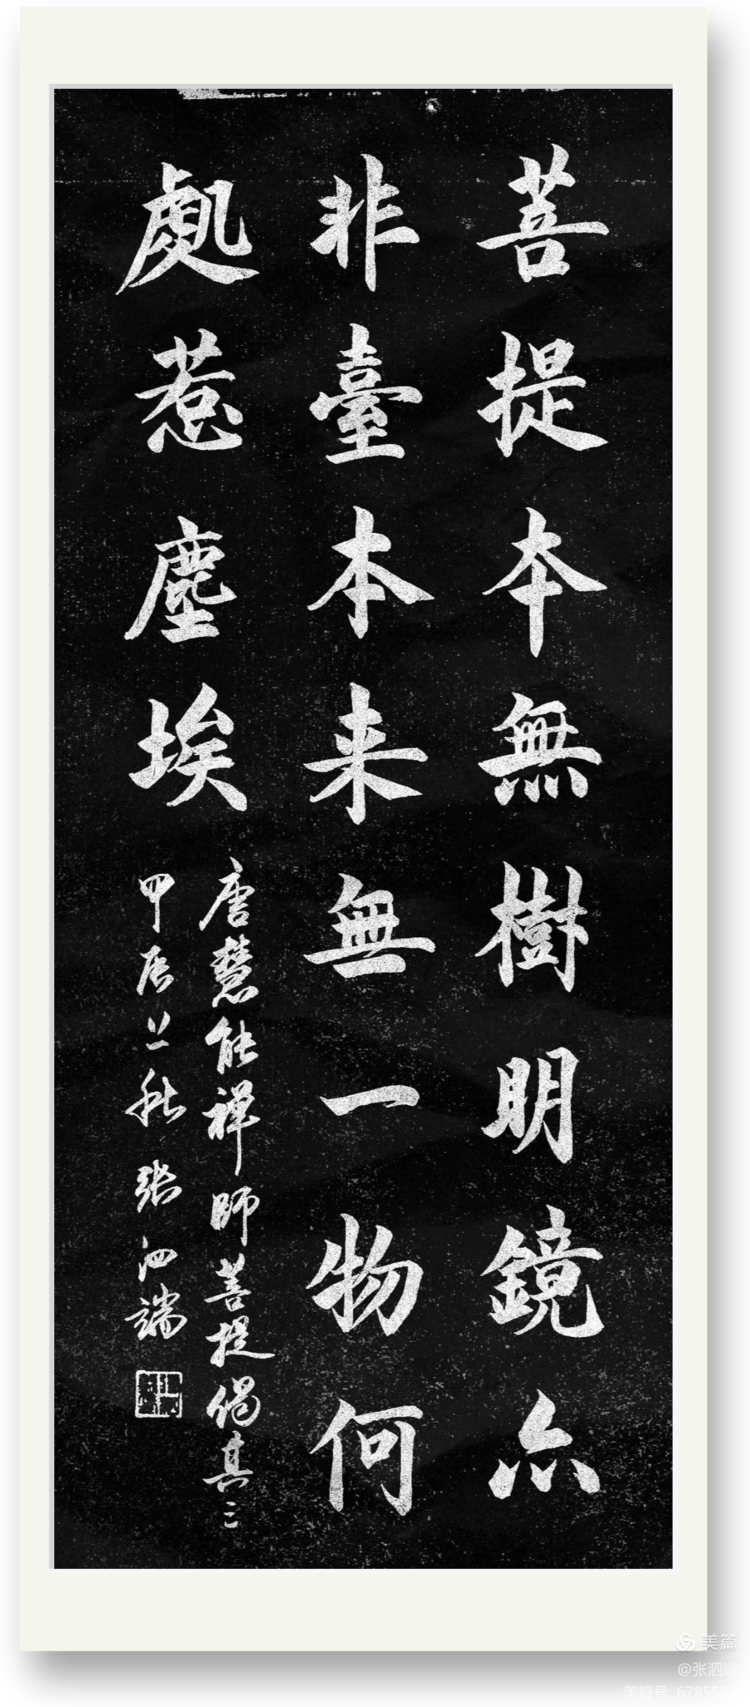 菩提本無樹明鏡亦
非臺本来無一物何
處惹塵埃
唐慧能禅師菩提偈其二
甲辰之秋张泗端
美篇
@张泗端
美篇号:678583